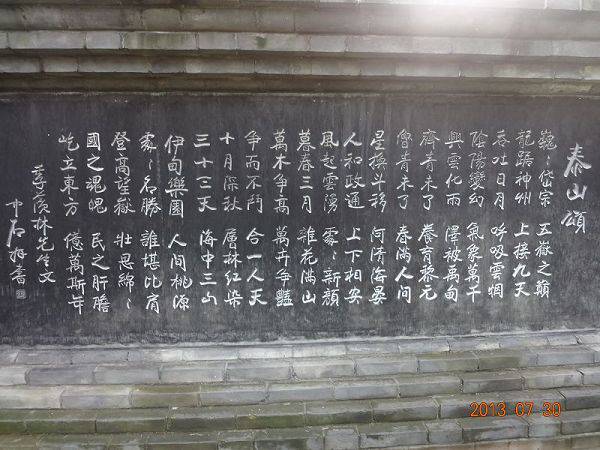 泰山頌
巍〻岱宗 五嶽之巔
龍踞神州 上接九天
吞吐日月 呼吸雲烟
陰陽變幻 氣象萬千
興雲化雨 澤被禹甸
齊青未了 養育黎元
魯青未了 春滿人间
星換斗移 河清海晏
人和政通 上下相安
風起雲湧 處〻新顏
暮春三月 雜花滿山
萬木爭高 萬卉爭豔
爭而不鬥 合一人天
十月深秋 層林紅染
三十三天 海中三山
伊甸樂園 人间桃源
處〻名勝 誰堪比肩
登高望嶽 壯思綿〻
國之魂魄 民之肝膽
屹立東方 億萬斯年
季羨林先生文
中石拜書
2013 07 30